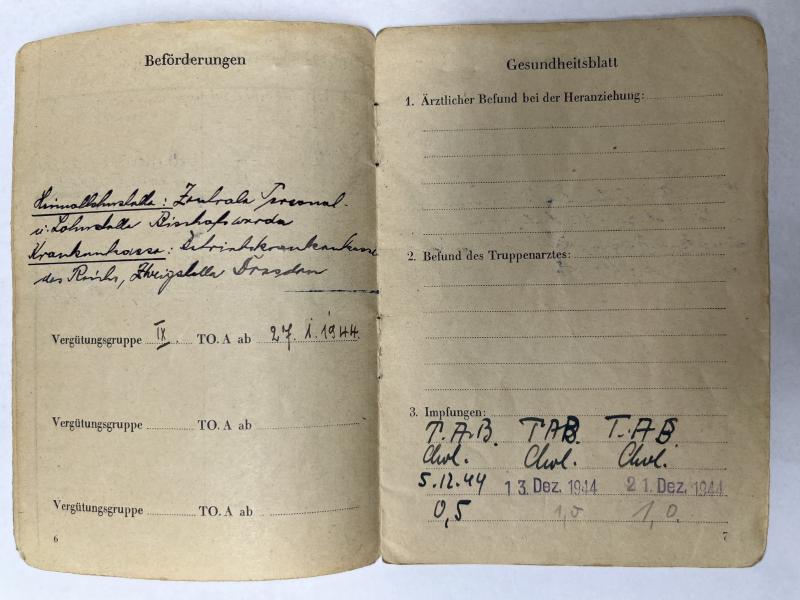 Beförderungen
Heimatlohnstelle: Zentrale Personal-
u. Lohnstelle Bischofswerda
Krankenkasse: Betriebskrankenkasse
des Reichs, Zweigstelle Dresden
Vergütungsgruppe IX. TO. A ab 27. 1. 1944.
Vergütungsgruppe TO. A ab
Vergütungsgruppe TO. A ab
6
Gesundheitsblatt
1. Ärztlicher Befund bei der Heranziehung:
2. Befund des Truppenarztes:
3. Impfungen:
T. A. B. TAB. T. A B
Chol. Chol. Chol.
5.12.44 13. Dez. 1944 21. Dez. 1944
0,5 1,0 1,0.
7